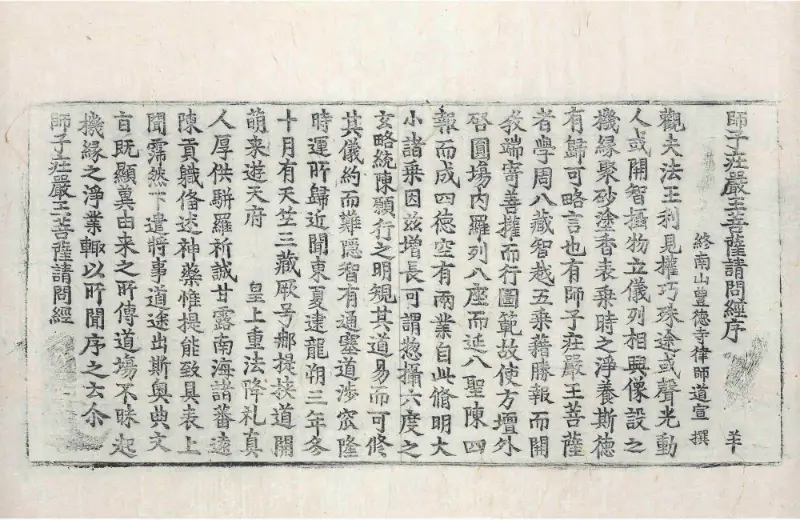 師子荘嚴王菩薩請問經序 羊
終南山豐德寺律師道宣 撰
觀夫法王利見權巧殊途或聲光動
人或開智攝物立儀列相興像設之
機緣聚砂塗香表乗時之淨養斯德
有歸可略言也有師子荘嚴王菩薩
者學周八藏智越五乗藉勝報而開
教端寄善權而行圓範故使方壇外
啓圓場内羅列八座而延八聖陳四
報而成四德空有兩業自此脩明大
小諸乗因兹增長可謂惣攝六度之
玄略統陳願行之明規其道易而可修
其儀約而難隱智有通塞道涉窊隆
時運所歸近聞東夏逮龍朔三年冬
十月有天竺三藏厥号郍提挾道開
萌来遊天府 皇上重法降礼真
人厚供駢羅祈誠甘露南海諸蕃遠
陳貢軄俻述神藥惟提能致具表上
聞霈然下遣將事道途出斯奥典文
旨既顯莫由来之所傳道場不昧起
機緣之淨業輙以所聞序之云尒
師子荘嚴王菩薩請問經